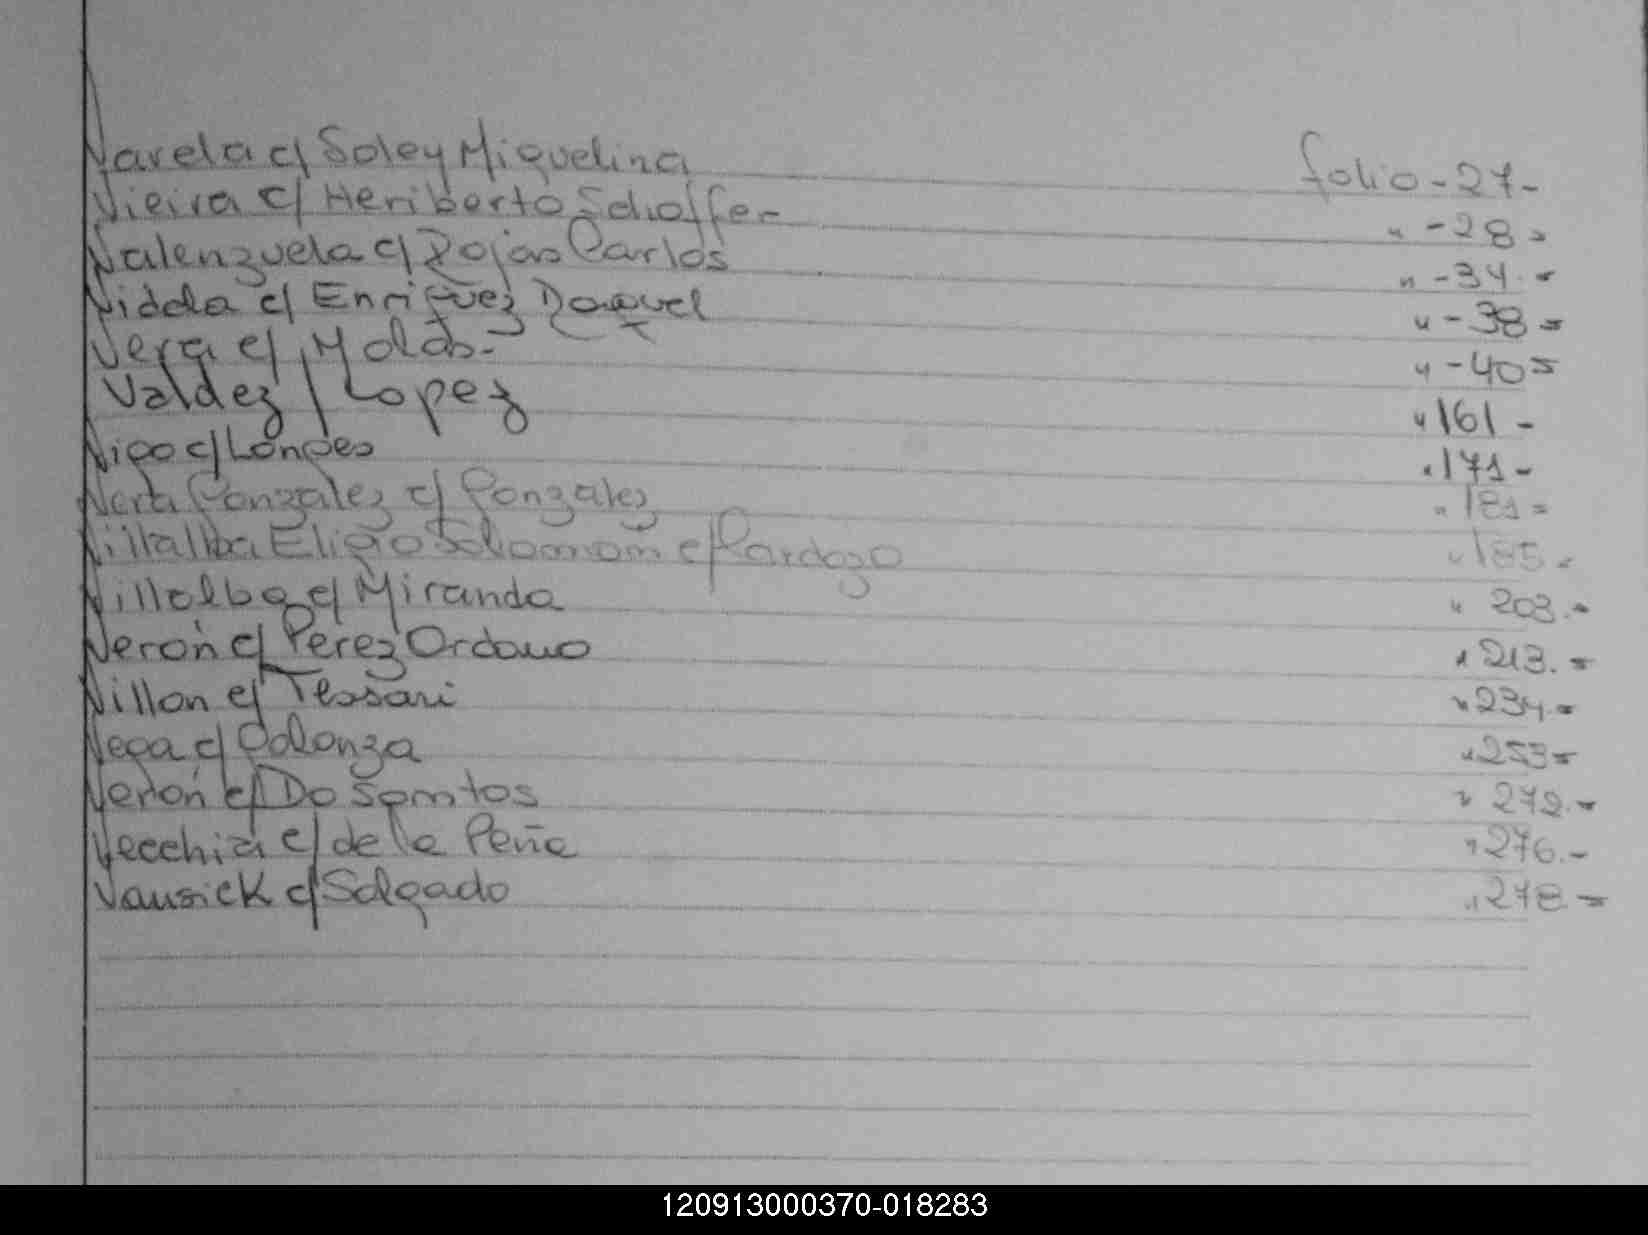 Varela c/ Soley Miguelina folio - 27 -
Vieira c/ Heriberto Schoffer - " - 28 =
Valenzuela c/ Rojas Carlos " - 34. =
c/ Enriquez Raquel " - 38 =
Vera c/ Molas.- " - 40 =
Valdez / Lopez " 161 -
Vigo c/ " 171 -
Vera Gonzalez c/ Gonzalez " 181 =
Villalba Eligio c/ Cardozo " 185. =
Villalba c/ Miranda " 203. =
Verón c/ Perez " 213. =
Villon c/ Tessari " 234. =
Vega c/ " 253 =
Verón c/ Do Santos " 272. =
Vecchia c/ de la Peña " 276. -
c/ Salgado " 278. =
120913000370-018283